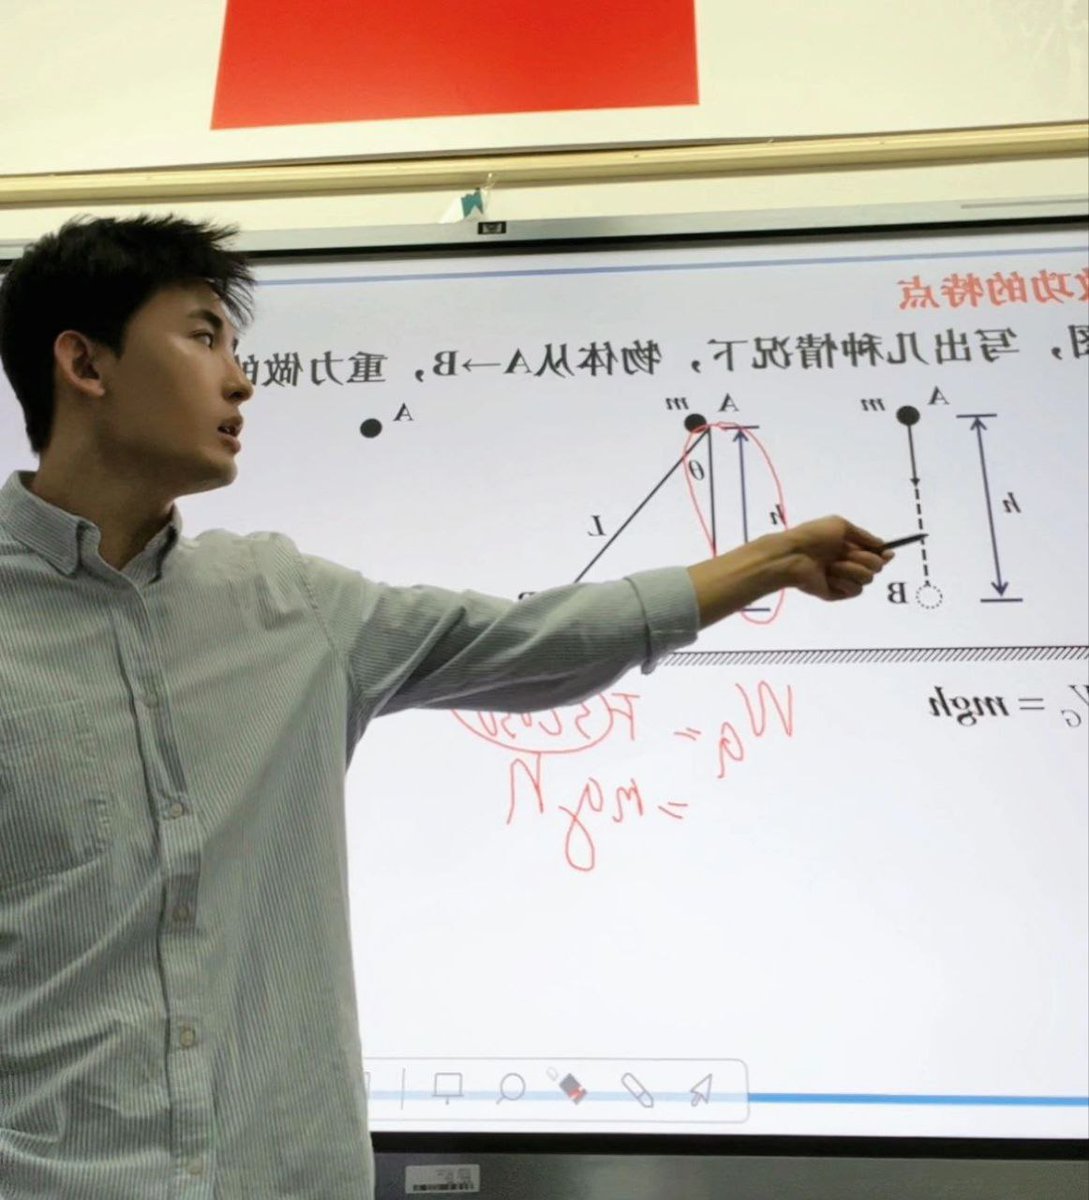 做功的特点
图，写出几种情况下，物体从A→B，重力做的
A
h
m
B
A
m
θ
h
L
A
G = mgh
W_G = F·s cosθ
= mgh